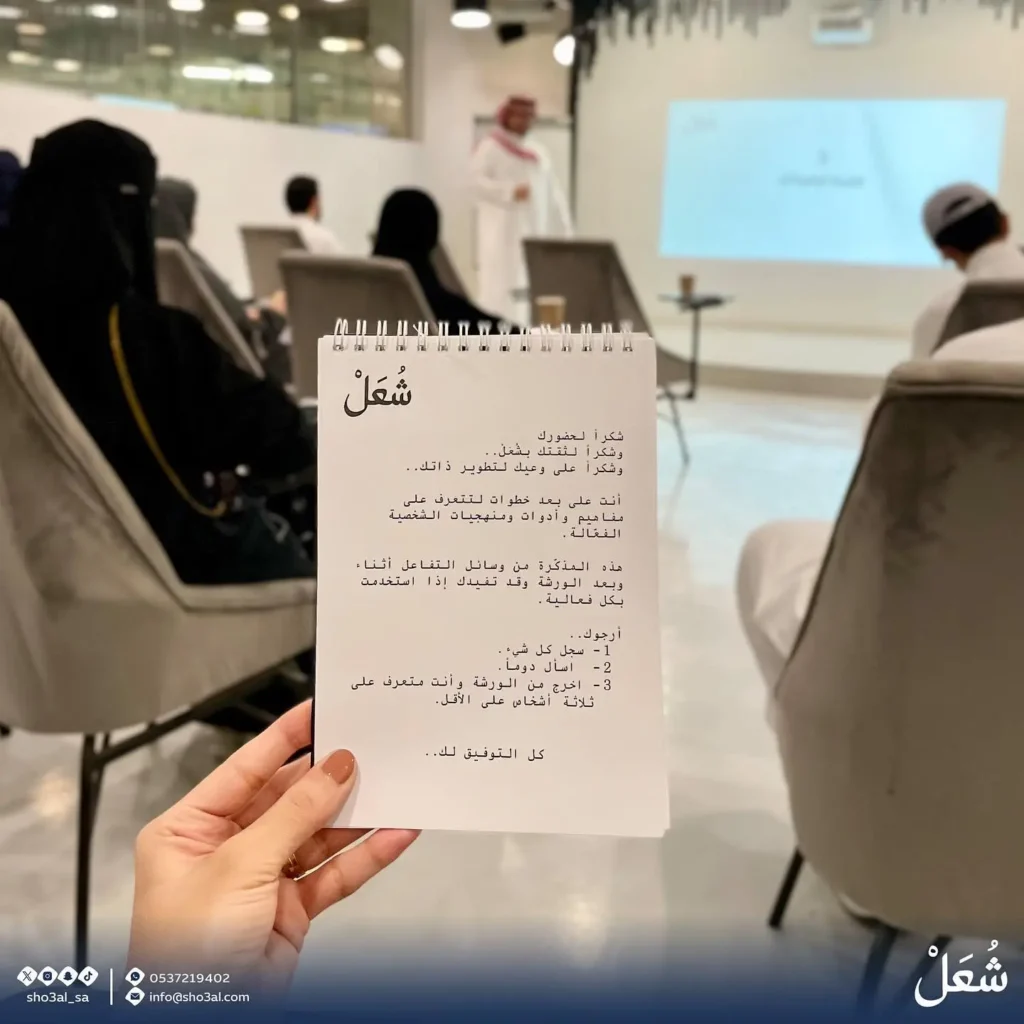 شُعَلْ
شكراً لحضورك
وشكراً لثقتك بشُعَلْ..
وشكراً على وعيك لتطوير ذاتك..
أنت على بعد خطوات لتتعرف على
مفاهيم وأدوات ومنهجيات الشخصية
الفعّالة.
هذه المذكّرة من وسائل التفاعل أثناء
وبعد الورشة وقد تفيدك إذا استخدمت
بكل فعالية.
أرجوك..
1- سجل كل شيء.
2- اسأل دوماً.
3- اخرج من الورشة وأنت متعرف على
ثلاثة أشخاص على الأقل.
كل التوفيق لك..
sho3al_sa
0537219402
info@sho3al.com
شُعَلْ